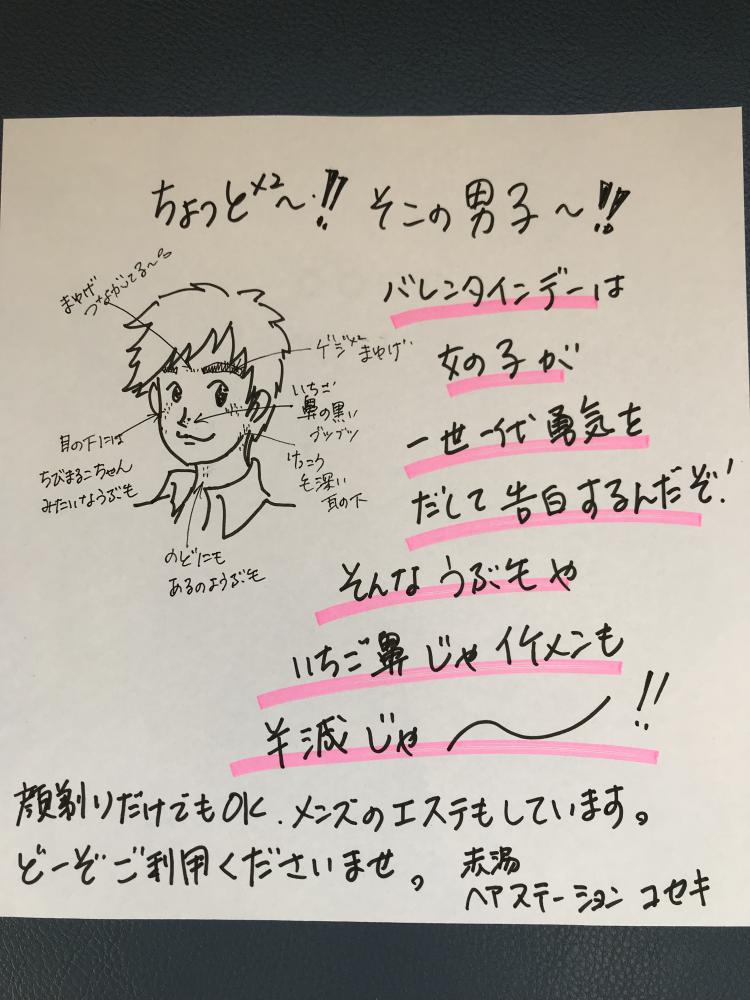 ちょっと×2〜!! そこの男子〜!!
まゆげ
つながってる〜。
ゲジ×2まゆげ
いちご
鼻の黒い
ブツブツ
目の下には
ちびまるこちゃん
みたいなうぶ毛
けっこう
毛深い
耳の下
のどにも
あるのようぶ毛
バレンタインデーは
女の子が
一世一代勇気を
だして告白するんだぞ!
そんなうぶ毛や
いちご鼻じゃイケメンも
半減じゃ〜!!
顔剃りだけでもOK.メンズのエステもしています。
どーぞご利用くださいませ。
赤湯
ヘアステーション コセキ